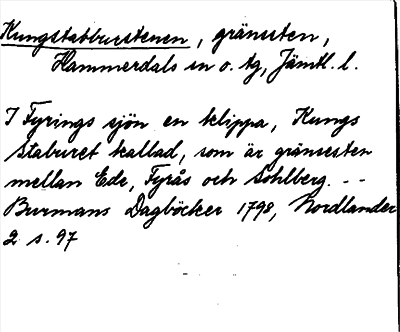 Kungstabburstenen, gränssten,
Hammerdals sn o. tg, Jämtl. l.
I Fyrings sjön en klippa, Kungs
Staburet kallad, som är gränssten
mellan Ede, Fyrås och Sohlberg. - -
Burmans Dagböcker 1798, Nordlander
2 s. 97